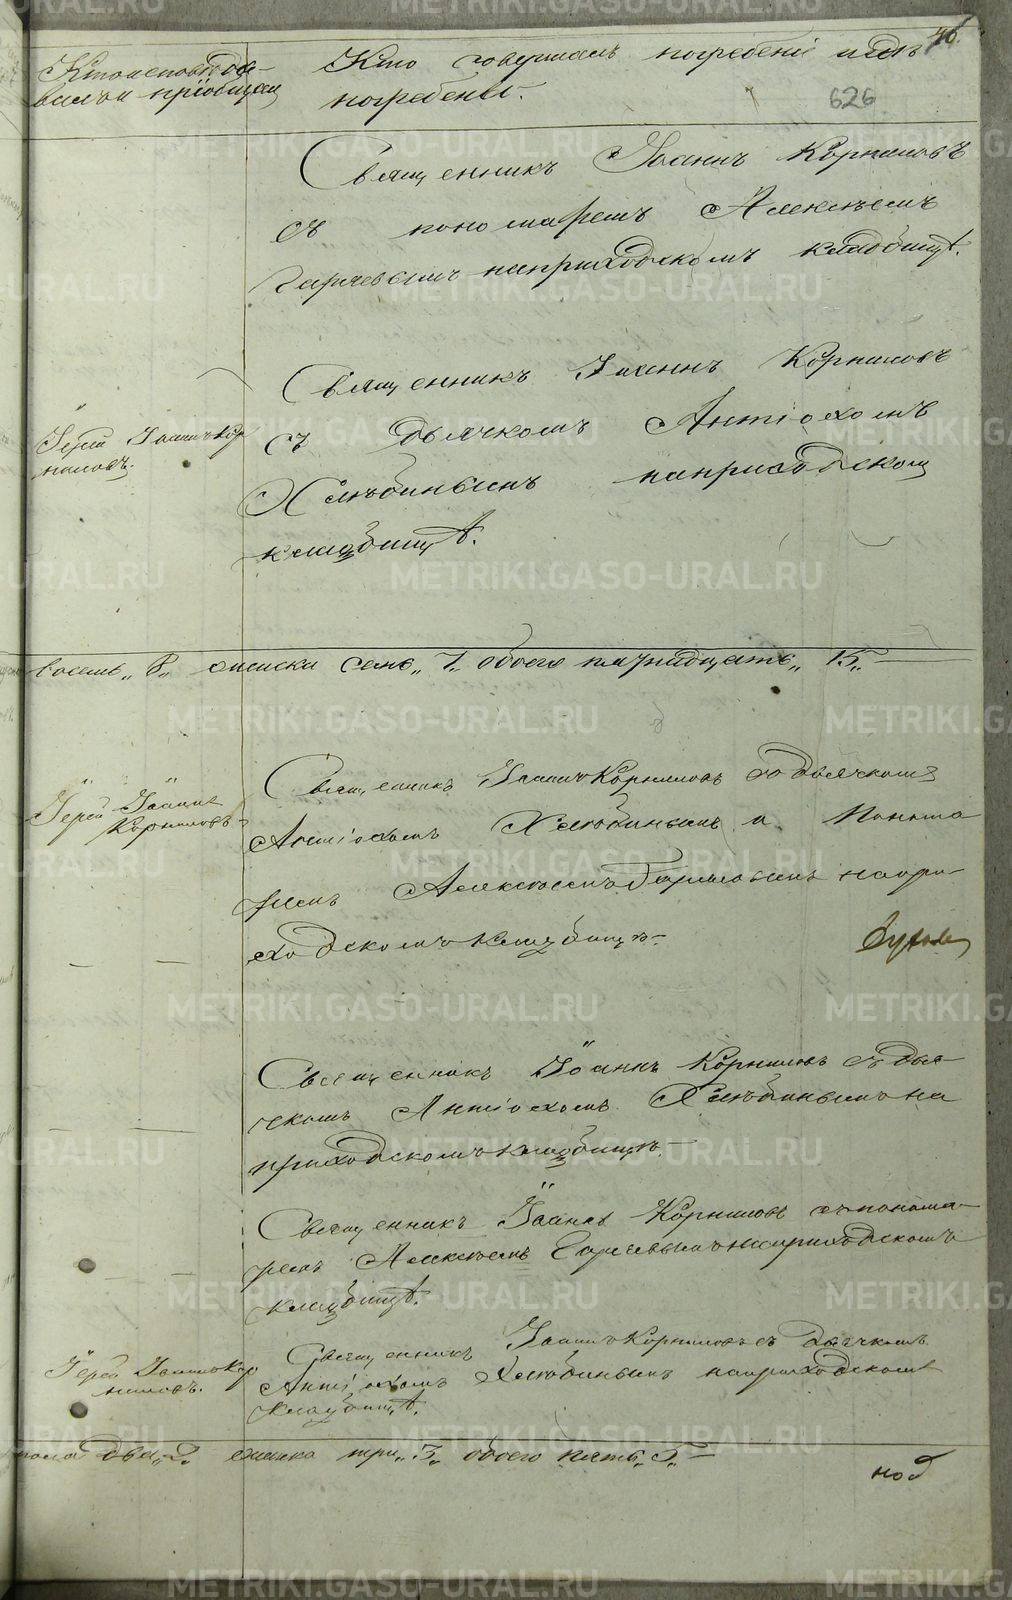 76.
626
Кто исповѣдо-
валъ и пріобщал
Кто совершалъ погребеніе и гдѣ
погребены.
Священникъ Іоаннъ Корниловъ
съ пономаремъ Алексѣемъ
на приходскомъ кладбищѣ.
Священникъ Іоаннъ Корниловъ
съ дьячкомъ Антіохомъ
Хлѣбинымъ на приходском
кладбищѣ.
Іерей Іоаннъ Кор
ниловъ.
восемь „8„ женска семь „7„ обоего пятнадцать „15„
Іерей Іоаннъ
Корниловъ
Священникъ Іоаннъ Корниловъ со дьячкомъ
Антіохомъ Хлѣбинымъ и Понома
ремъ Алексѣемъ на при-
ходскомъ кладбищѣ
Священникъ Іоаннъ Корниловъ съ дья-
чкомъ Антіохомъ Хлѣбинымъ на
приходскомъ кладбищѣ.
Священникъ Іоаннъ Корниловъ съ понома-
ремъ Алексѣемъ на приходскомъ
кладбищѣ.
Іерей Іоаннъ Кор
ниловъ.
Священникъ Іоаннъ Корниловъ съ дьячкомъ
Антіохомъ Хлѣбинымъ на приходскомъ
кладбищѣ.
пола два „2„ женска три „3„ обоего пять „5„
METRIKI.GASO-URAL.RU